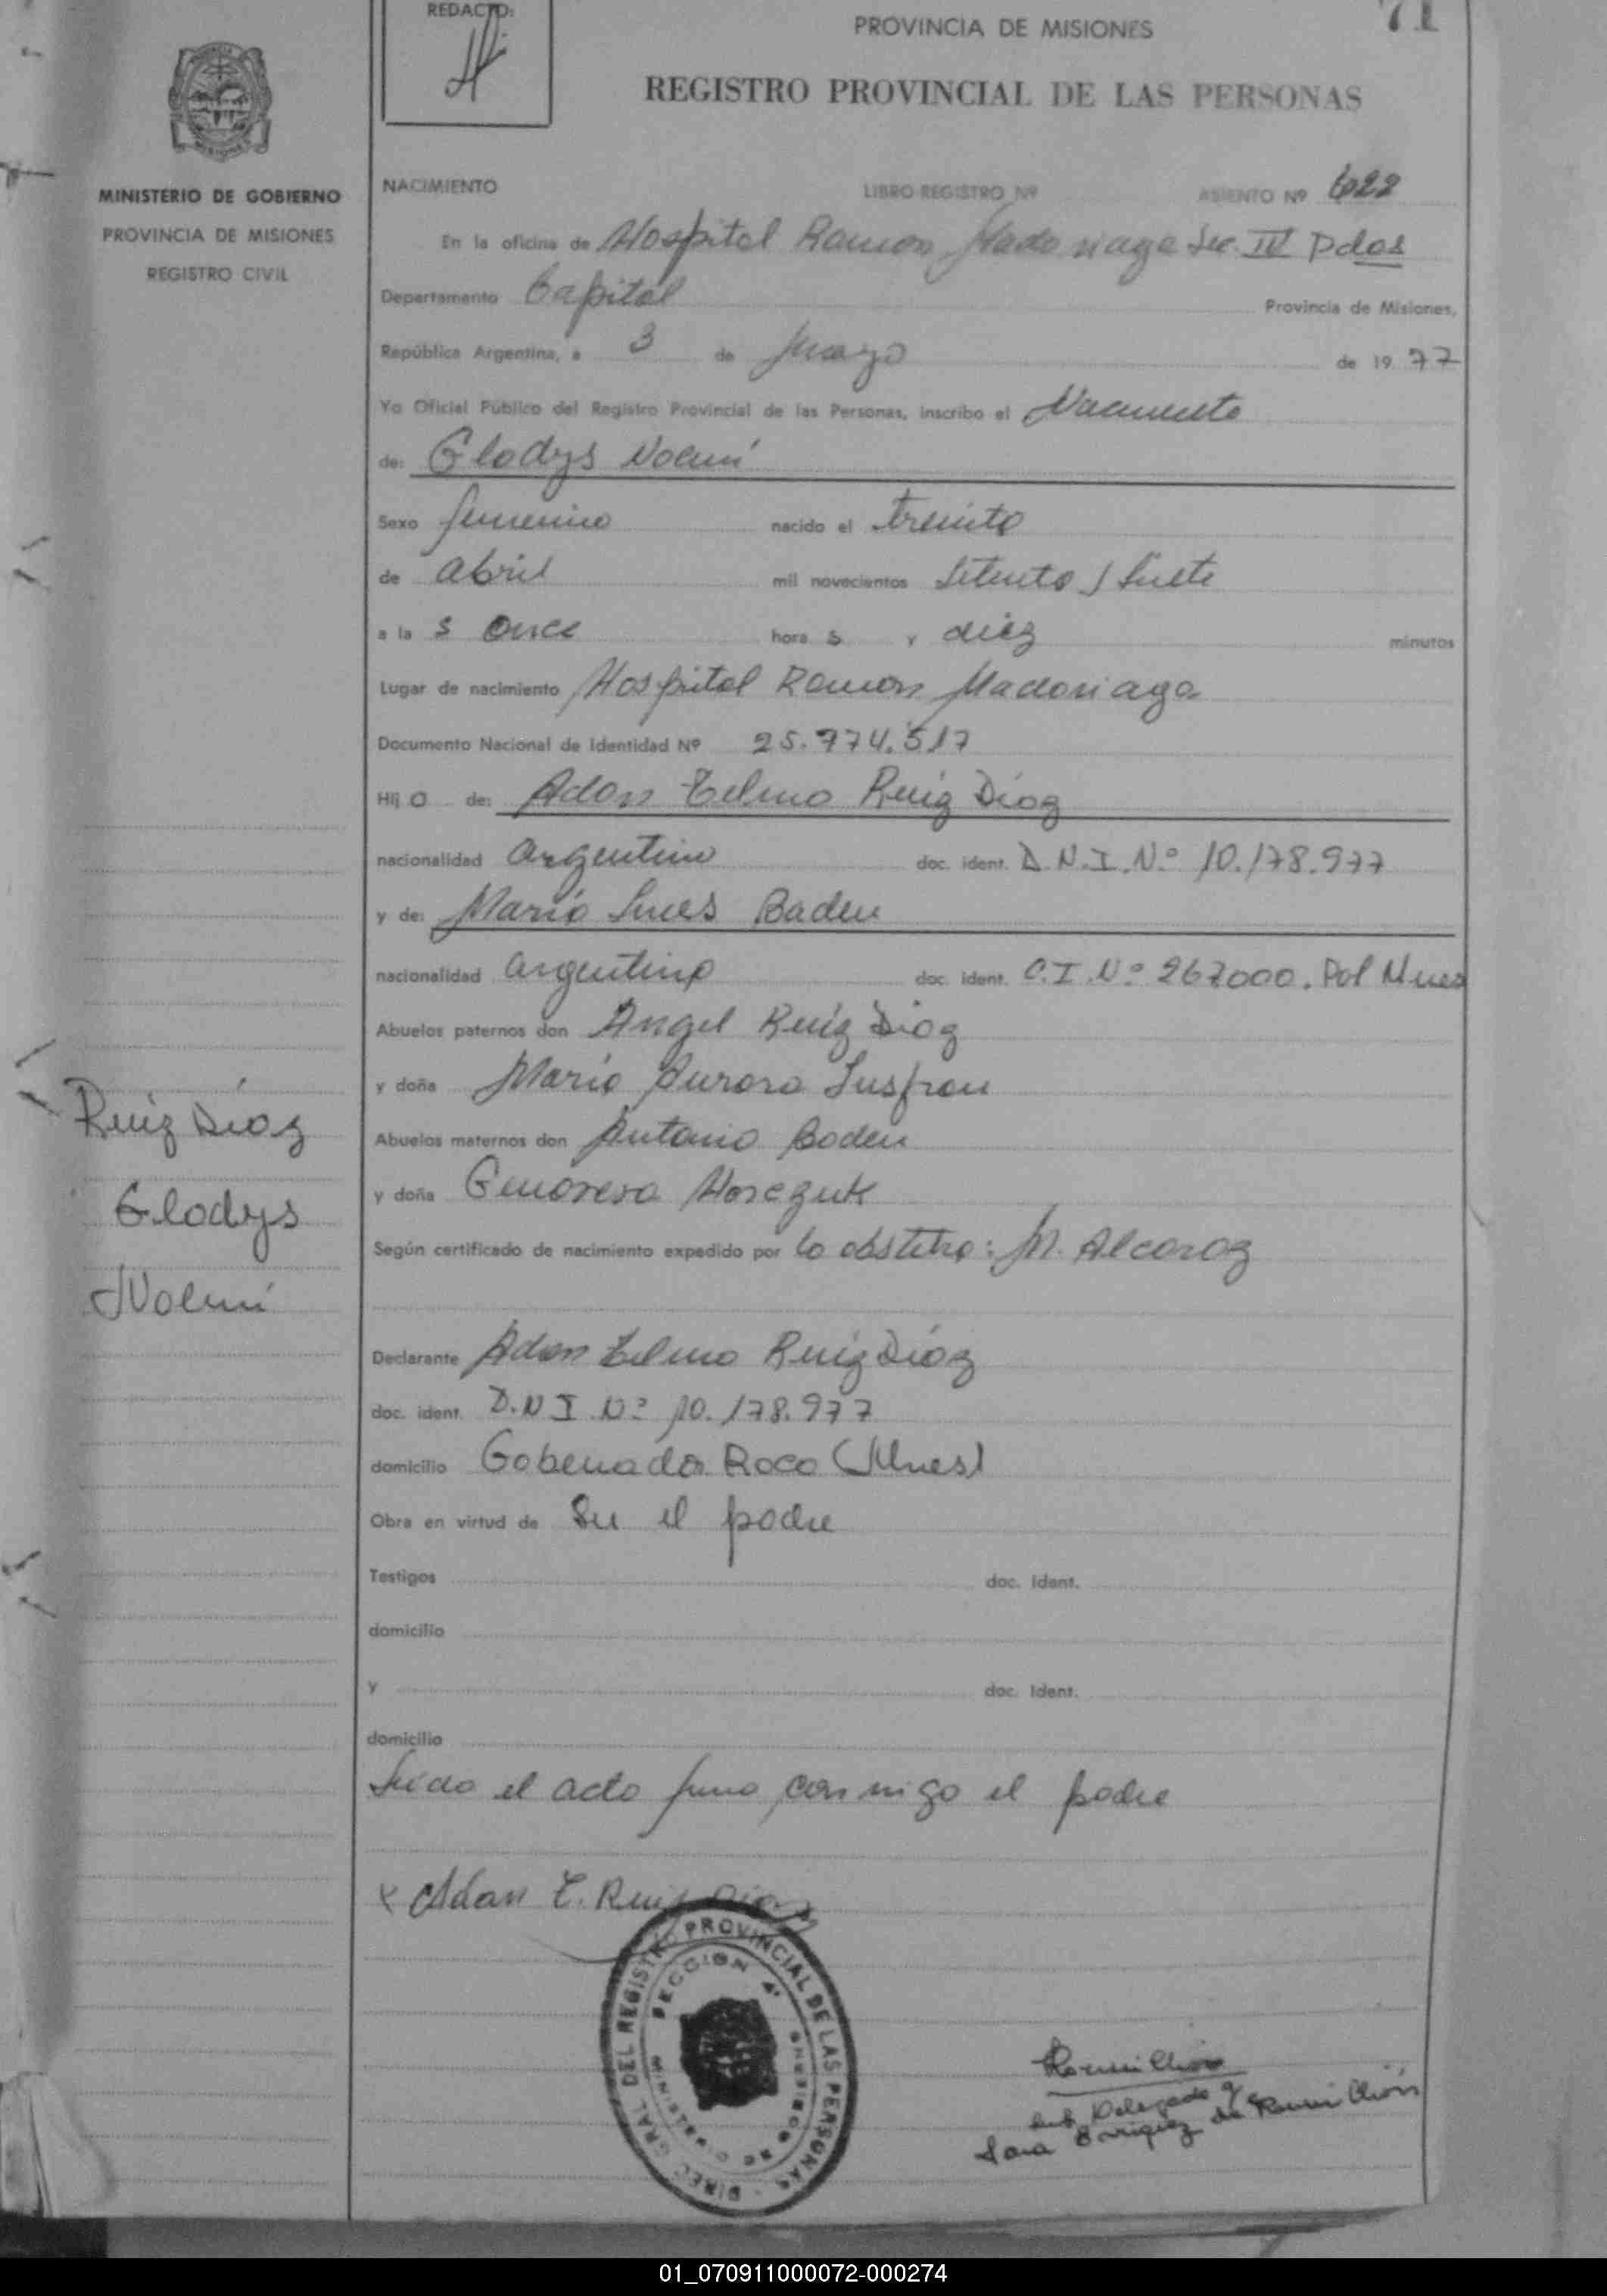 REDACTO:
PROVINCIA DE MISIONES
71
REGISTRO PROVINCIAL DE LAS PERSONAS
MINISTERIO DE GOBIERNO
PROVINCIA DE MISIONES
REGISTRO CIVIL
NACIMIENTO LIBRO REGISTRO Nº ASIENTO Nº 622
En la oficina de Hospital Ramon Madariaga Sec. IV Pdas
Departamento Capital Provincia de Misiones,
República Argentina, a 3 de Mayo de 1977
Yo Oficial Público del Registro Provincial de las Personas, inscribo el Nacimiento
de: Gladys Noemí
Sexo femenino nacido el treinta
de abril mil novecientos setenta y siete
a la s once hora s y diez minutos
Lugar de nacimiento Hospital Ramon Madariaga
Documento Nacional de Identidad Nº 25.974.517
Hij a de: Adan Telmo Ruiz Díaz
nacionalidad argentino doc. ident. D.N.I.Nº 10.178.977
y de: María Ines Baden
nacionalidad argentina doc. ident. C.I.Nº 267000. Pol Mnes
Abuelos paternos don Angel Ruiz Diaz
y doña María Aurora Insfran
Abuelos maternos don Antonio Baden
y doña Genoveva
Según certificado de nacimiento expedido por la obstetra: M. Alcaraz
Declarante Adan Telmo Ruiz Díaz
doc. ident. D.N.I Nº 10.178.977
domicilio Gobernador Roca (Mnes)
Obra en virtud de Ser el padre
Testigos doc. Ident.
domicilio
y doc. Ident.
domicilio
Leída el acta firma conmigo el padre
x Adan T. Ruiz Diaz
Ruiz Díaz
Gladys
Noemí
DIREC. GRAL. DEL REGISTRO PROVINCIAL DE LAS PERSONAS
SECCION 4ª
MINISTERIO DE GOBIERNO
Ramillon
Sub Delegada
Sara de Ramillón
01_070911000072-000274